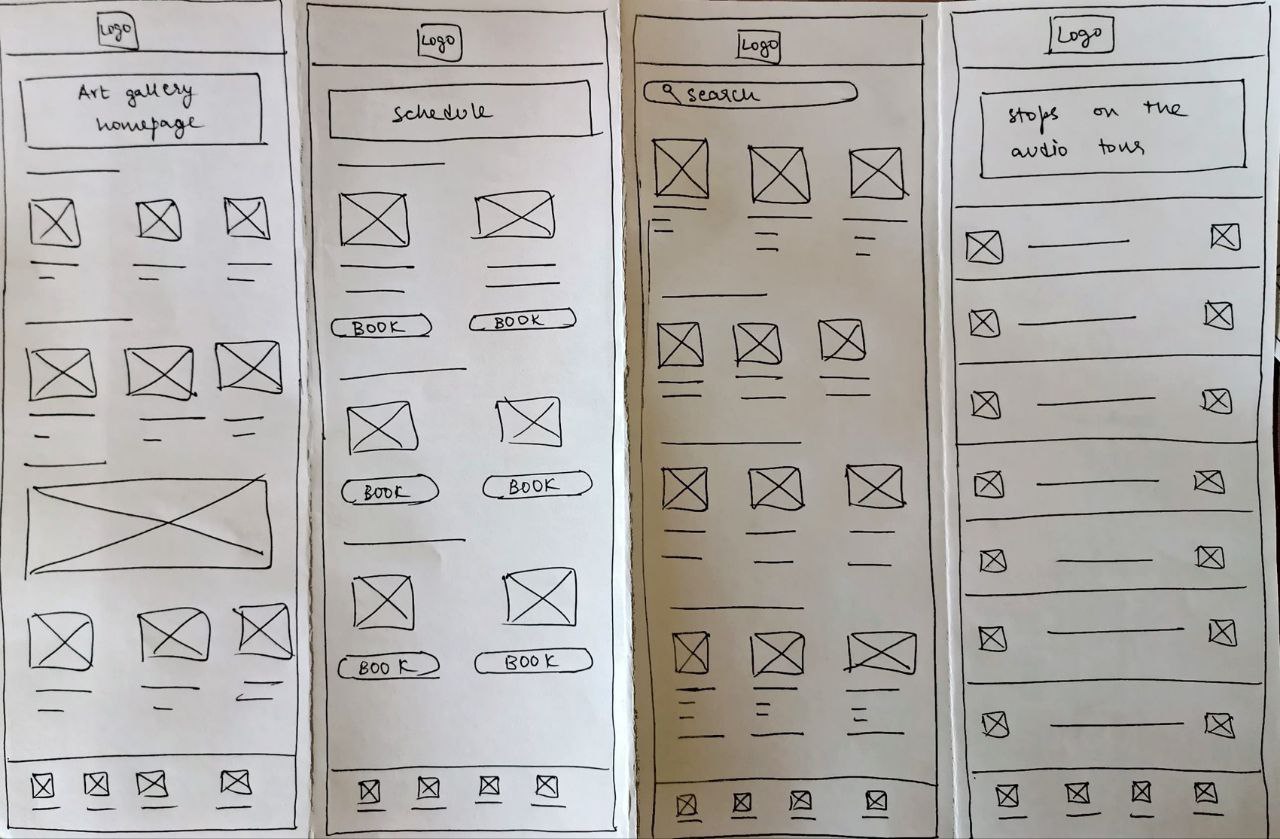 Logo
Art gallery
homepage
Logo
Schedule
BOOK
BOOK
BOOK
BOOK
BOOK
BOOK
Logo
search
Logo
stops on the
audio tour